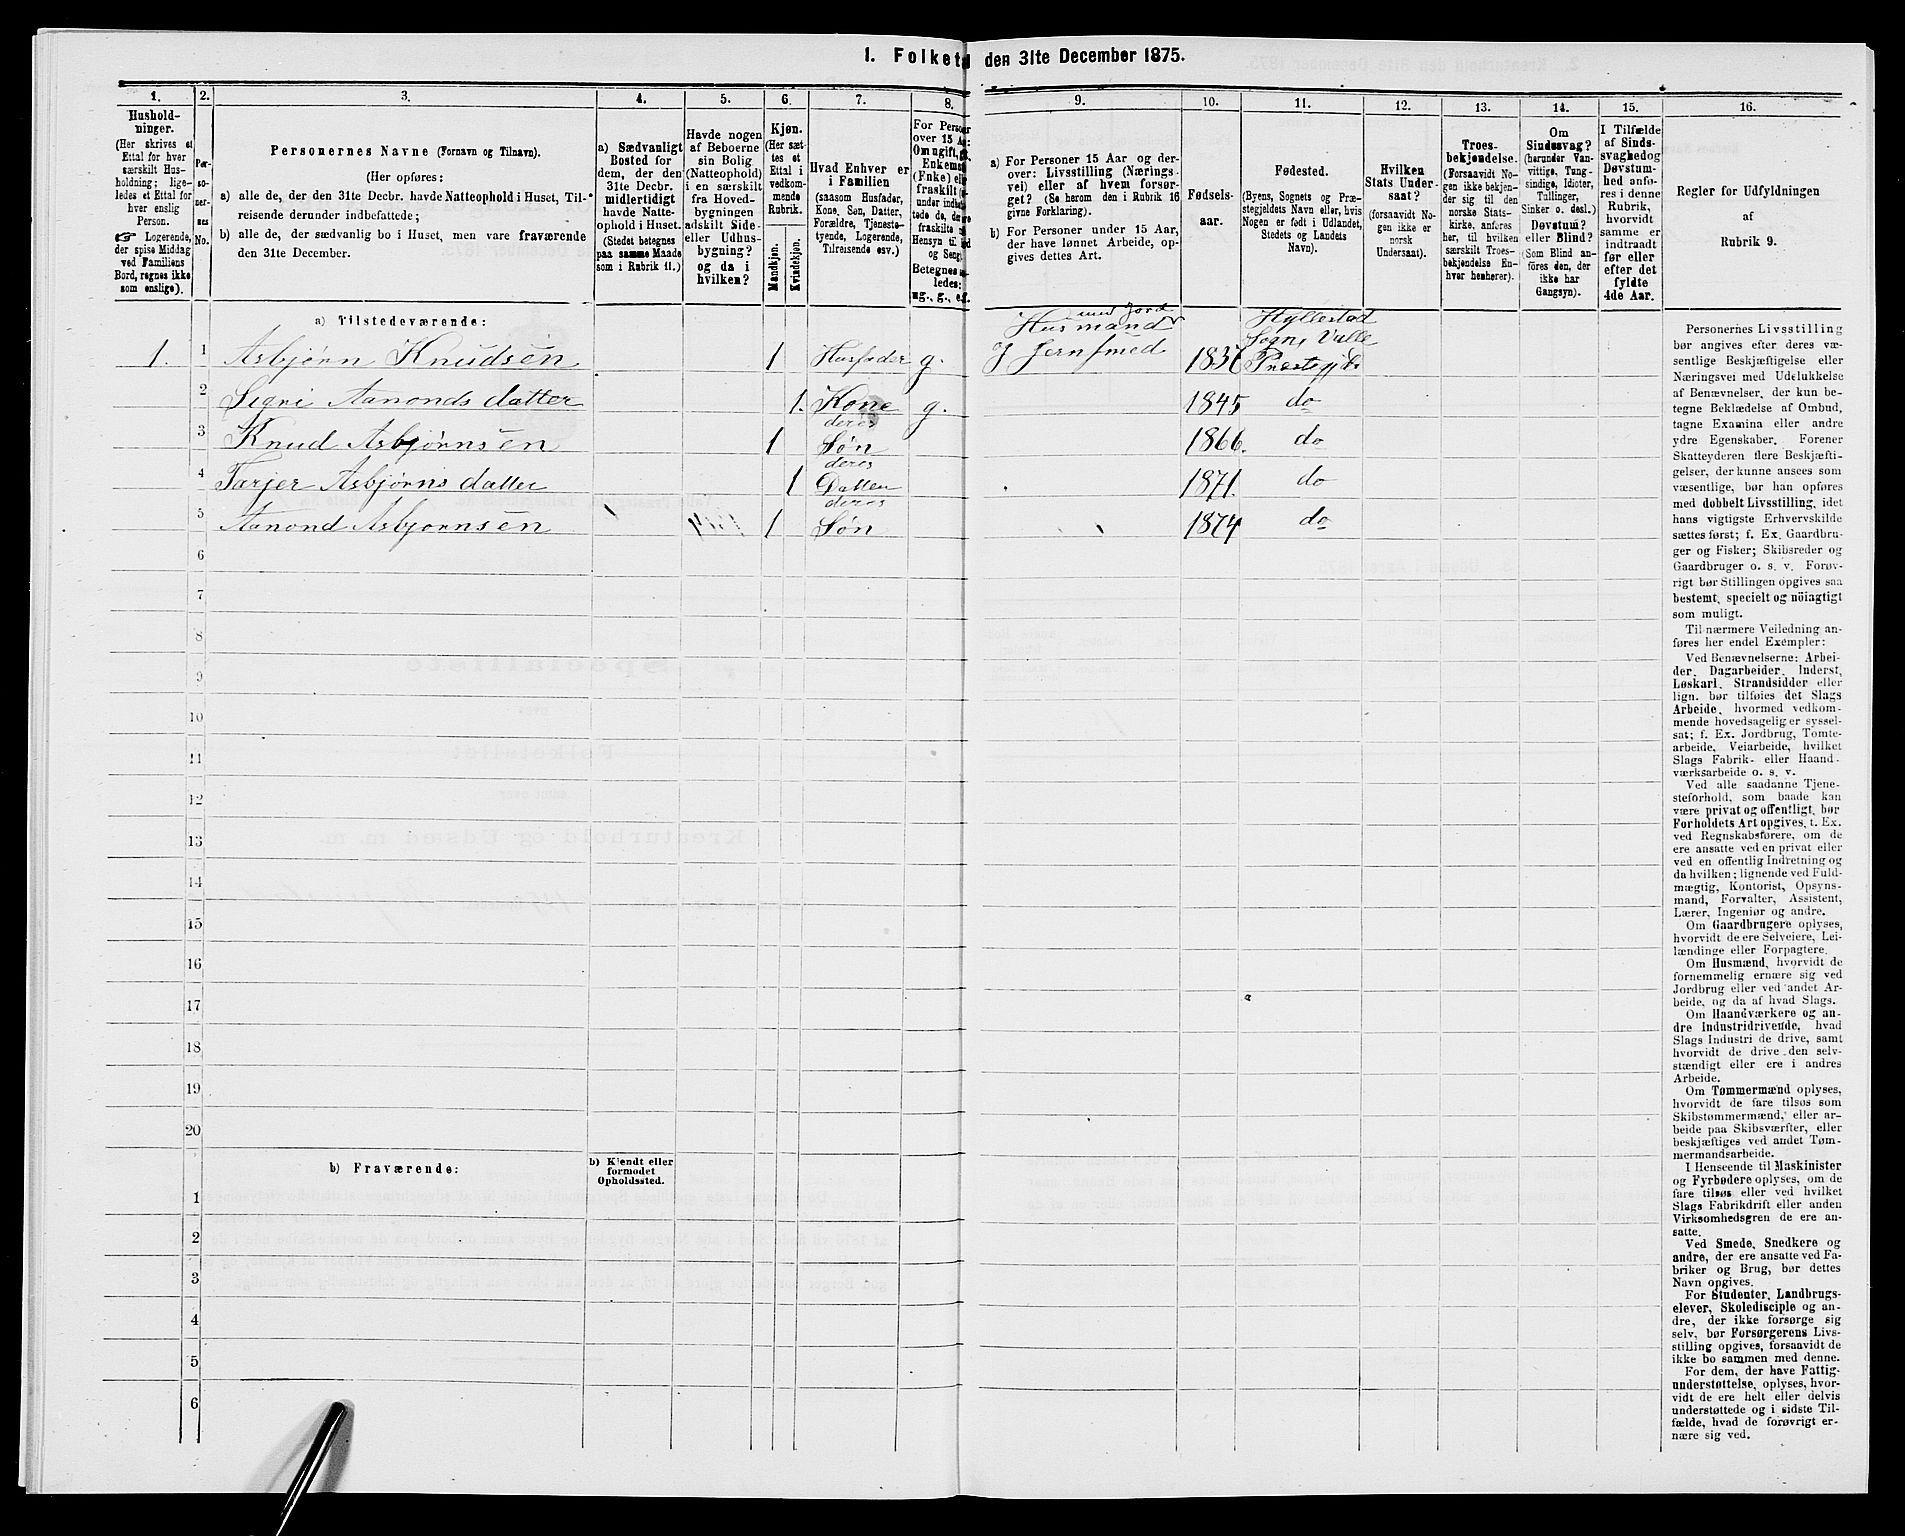 1. Folketal den 31te December 1875.
1. 2. 3. 4. 5. 6. 7. 8. 9. 10. 11. 12. 13. 14. 15. 16.
Hushold-
ninger.
(Her skrives et
Ettal for hver
særskilt Hus-
holdning; lige-
ledes et Ettal for
hver enslig
Person.
☞ Logerende,
der spise Middag
ved Familiens
Bord, regnes ikke
som enslige).
Per-
so-
ner-
nes
No.
Personernes Navne (Fornavn og Tilnavn).
(Her opføres:
a) alle de, der den 31te Decbr. havde Natteophold i Huset, Til-
reisende derunder indbefattede;
b) alle de, der sædvanlig bo i Huset, men vare fraværende
den 31te December.
a) Sædvanligt
Bosted for
dem, der den
31te Decbr.
midlertidigt
havde Natte-
ophold i Huset.
(Stedet betegnes
paa samme Maade
som i Rubrik 11.)
Havde nogen
af Beboerne
sin Bolig
(Natteophold)
i en særskilt
fra Hoved-
bygningen
adskilt Side-
eller Udhus-
bygning?
og da i
hvilken?
Kjøn.
(Her sæt-
tes et
Ettal i
vedkom-
mende
Rubrik.
Mandkjøn.
Kvindekjøn.
Hvad Enhver er
i Familien
(saasom Husfader,
Kone, Søn, Datter,
Forældre, Tjeneste-
tyende, Logerende,
Tilreisende osv.)
For Personer
over 15 Aar:
Om ugift, gift,
Enkemand
(Enke) eller
fraskilt
Betegnes saa-
ledes:
ug., g., e.f.
a) For Personer 15 Aar og der-
over: Livsstilling (Nærings-
vei) eller af hvem forsør-
get? (Se herom den i Rubrik 16
givne Forklaring).
b) For Personer under 15 Aar,
der have lønnet Arbeide, op-
gives dettes Art.
Fødsels-
aar.
Fødested.
(Byens, Sognets og Præ-
stegjeldets Navn eller, hvis
Nogen er født i Udlandet,
Stedets og Landets
Navn).
Hvilken
Stats Under-
saat?
(forsaavidt No-
gen ikke er
norsk
Undersaat).
Troes-
bekjendelse.
(Forsaavidt No-
gen ikke bekjen-
der sig til den
norske Stats-
kirke, anføres
her, til hvilken
særskilt Troes-
bekjendelse En-
hver henhører).
Om
Sindssvag?
(herunder Van-
vittige, Tung-
sindige, Idioter,
Tullinger,
Sinker o. desl.)
Døvstum?
eller Blind?
(Som Blind an-
føres den, der
ikke har
Gangsyn).
I Tilfælde
af Sinds-
svaghed og
Døvstum-
hed anfø-
res i denne
Rubrik,
hvorvidt
samme er
indtraadt
før eller
efter det
fyldte
4de Aar.
Regler for Udfyldningen
af
Rubrik 9.
a) Tilstedeværende:
1. 1 Asbjørn Knudsen 1 Husfader g. Husmand med Jord og Jernsmed Hyllestad Sogn, Valle Præstegjeld
2 Signi Aanonds datter 1. Kone g. 1845 do
3 Knud Asbjørnsen 1 deres Søn 1866. do
4 Tarjer Asbjørns datter 1 deres Datter 1871. do
5 Aanond Asbjørnsen 1 deres Søn 1874 do
6
7
8
9
10
11
12
13
14
15
16
17
18
19
20
b) Fraværende:
b) Kjendt eller
formodet
Opholdssted.
1
2
3
4
5
6
Personernes Livsstilling
bør angives efter deres væ-
sentlige Beskjæftigelse eller
Næringsvei med Udelukkelse
af Benævnelser, der kun be-
tegne Beklædelse af Ombud,
tagne Examina eller andre
ydre Egenskaber. Forener
Skatteyderen flere Beskjæfti-
gelser, der kunne ansees som
væsentlige, bør han opføres
med dobbelt Livsstilling, idet
hans vigtigste Erhvervskilde
sættes først; f. Ex. Gaardbru-
ger og Fisker; Skibsreder og
Gaardbruger o. s. v. Forøv-
rigt bør Stillingen opgives saa
bestemt, specielt og nöiagtigt
som muligt.
Til nærmere Veiledning an-
føres her endel Exempler:
Ved Benævnelserne: Arbei-
der, Dagarbeider, Inderst,
Løskarl, Strandsidder eller
lign. bør tilføies det Slags
Arbeide, hvormed vedkom-
mende hovedsagelig er syssel-
sat; f. Ex. Jordbrug, Tomte-
arbeide, Veiarbeide, hvilket
Slags Fabrik- eller Haand-
værksarbeide o. s. v.
Ved alle saadanne Tjene-
steforhold, som baade kan
være privat og offentligt, bør
Forholdets Art opgives, t. Ex.
ved Regnskabsførere, om de
ere ansatte ved en privat eller
ved en offentlig Indretning og
da hvilken; lignende ved Fuld-
mægtig, Kontorist, Opsyns-
mand, Forvalter, Assistent,
Lærer, Ingeniør og andre.
Om Gaardbrugere oplyses,
hvorvidt de ere Selveiere, Lei-
lændinge eller Forpagtere.
Om Husmænd, hvorvidt de
fornemmelig ernære sig ved
Jordbrug eller ved andet Ar-
beide, og da af hvad Slags.
Om Haandværkere og an-
dre Industridrivende, hvad
Slags Industri de drive, samt
hvorvidt de drive den selv-
stændigt eller ere i andres
Arbeide.
Om Tømmermænd oplyses,
hvorvidt de fare tilsøs som
Skibstømmermænd, eller ar-
beide paa Skibsværfter, eller
beskjæftiges ved andet Tøm-
mermandsarbeide.
I Henseende til Maskinister
og Fyrbødere oplyses, om de
fare tilsøs eller ved hvilket
Slags Fabrikdrift eller anden
Virksomhedsgren de ere an-
satte.
Ved Smede, Snedkere og
andre, der ere ansatte ved Fa-
briker og Brug, bør dettes
Navn opgives.
For Studenter, Landbrugs-
elever, Skoledisciple og an-
dre, der ikke forsørge sig
selv, bør Forsørgerens Livs-
stilling opgives, forsaavidt de
ikke bo sammen med denne.
For dem, der have Fattig-
understøttelse, oplyses, hvor-
vidt de ere helt eller delvis
understøttede og i sidste Til-
fælde, hvad de forøvrigt er-
nære sig ved.